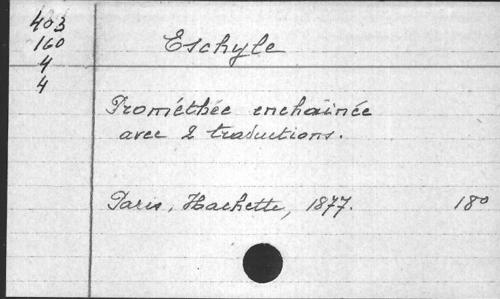 403
160
4
4
Eschyle
Prométhée enchaînée
avec 2 traductions.
Paris, Hachette, 1877. 18º